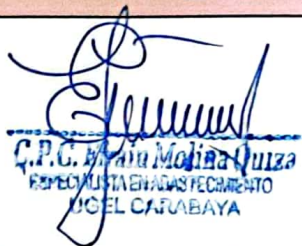 C.P.C. Efraín Molina Quiza
ESPECIALISTA EN ABASTECIMIENTO
UGEL CARABAYA